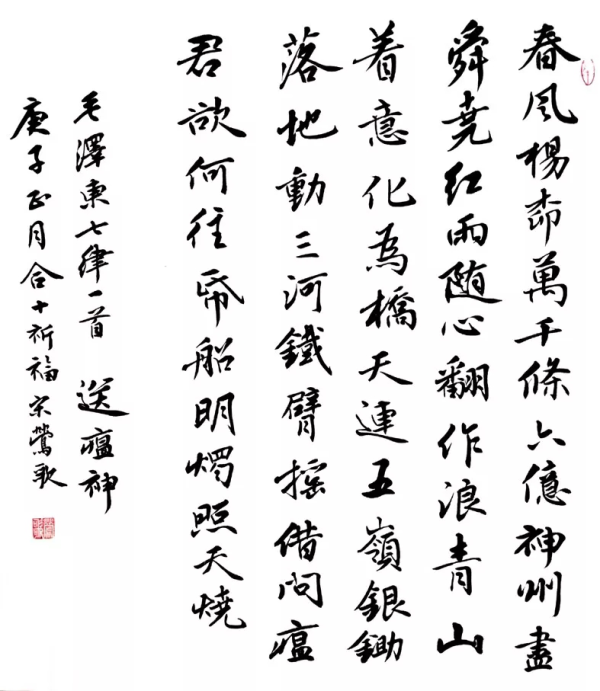 春风楊柳萬千條六億神州盡
舜尭红雨随心翻作浪青山
着意化為橋天連五嶺銀鋤
落地動三河鐵臂摇借问瘟
君欲何往帋船明燭照天燒
毛澤東七律一首 送瘟神
庚子正月合十祈福宋鶯歌